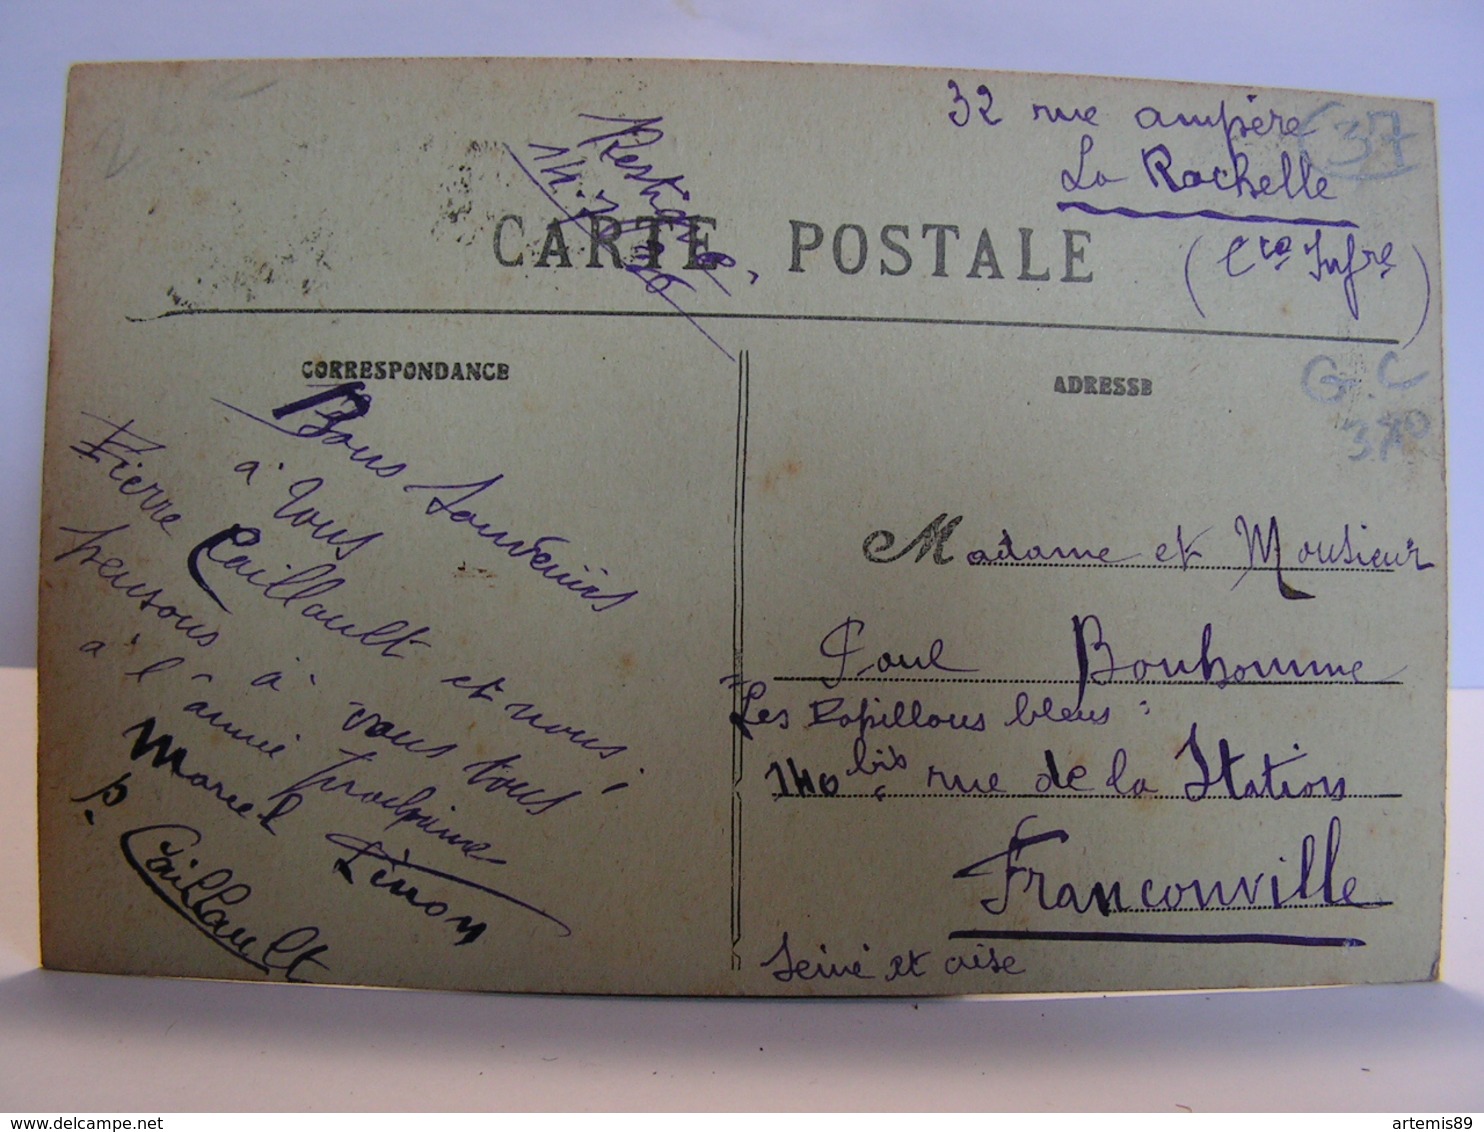 32 rue ampère
La Rochelle
(Cte Infre)
37
14.7.26
CARTE POSTALE
CORRESPONDANCE
ADRESSE
G.C
Bons Souvenirs
à Vous
Pierre Caillault et nous
pensons à vous tous
à l'année prochaine
Marcel Linon
P. Caillault
Madame et Monsieur
Paul Bonhomme
"Les Papillons bleus"
140 bis rue de la Station
Franconville
Seine et oise
artemis89